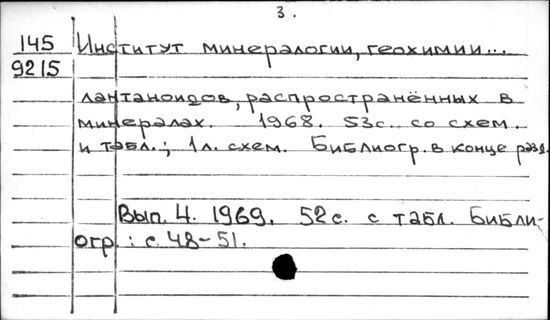 3.
145 Институт минералогии, геохимии...
9215
лантаноидов, распространённых в
минералах. 1968. 53с. со схем.
и табл.; 1л. схем. Библиогр. в конце разд.
Вып. 4. 1969. 52с. с табл. Библи-
огр.: с. 48-51.